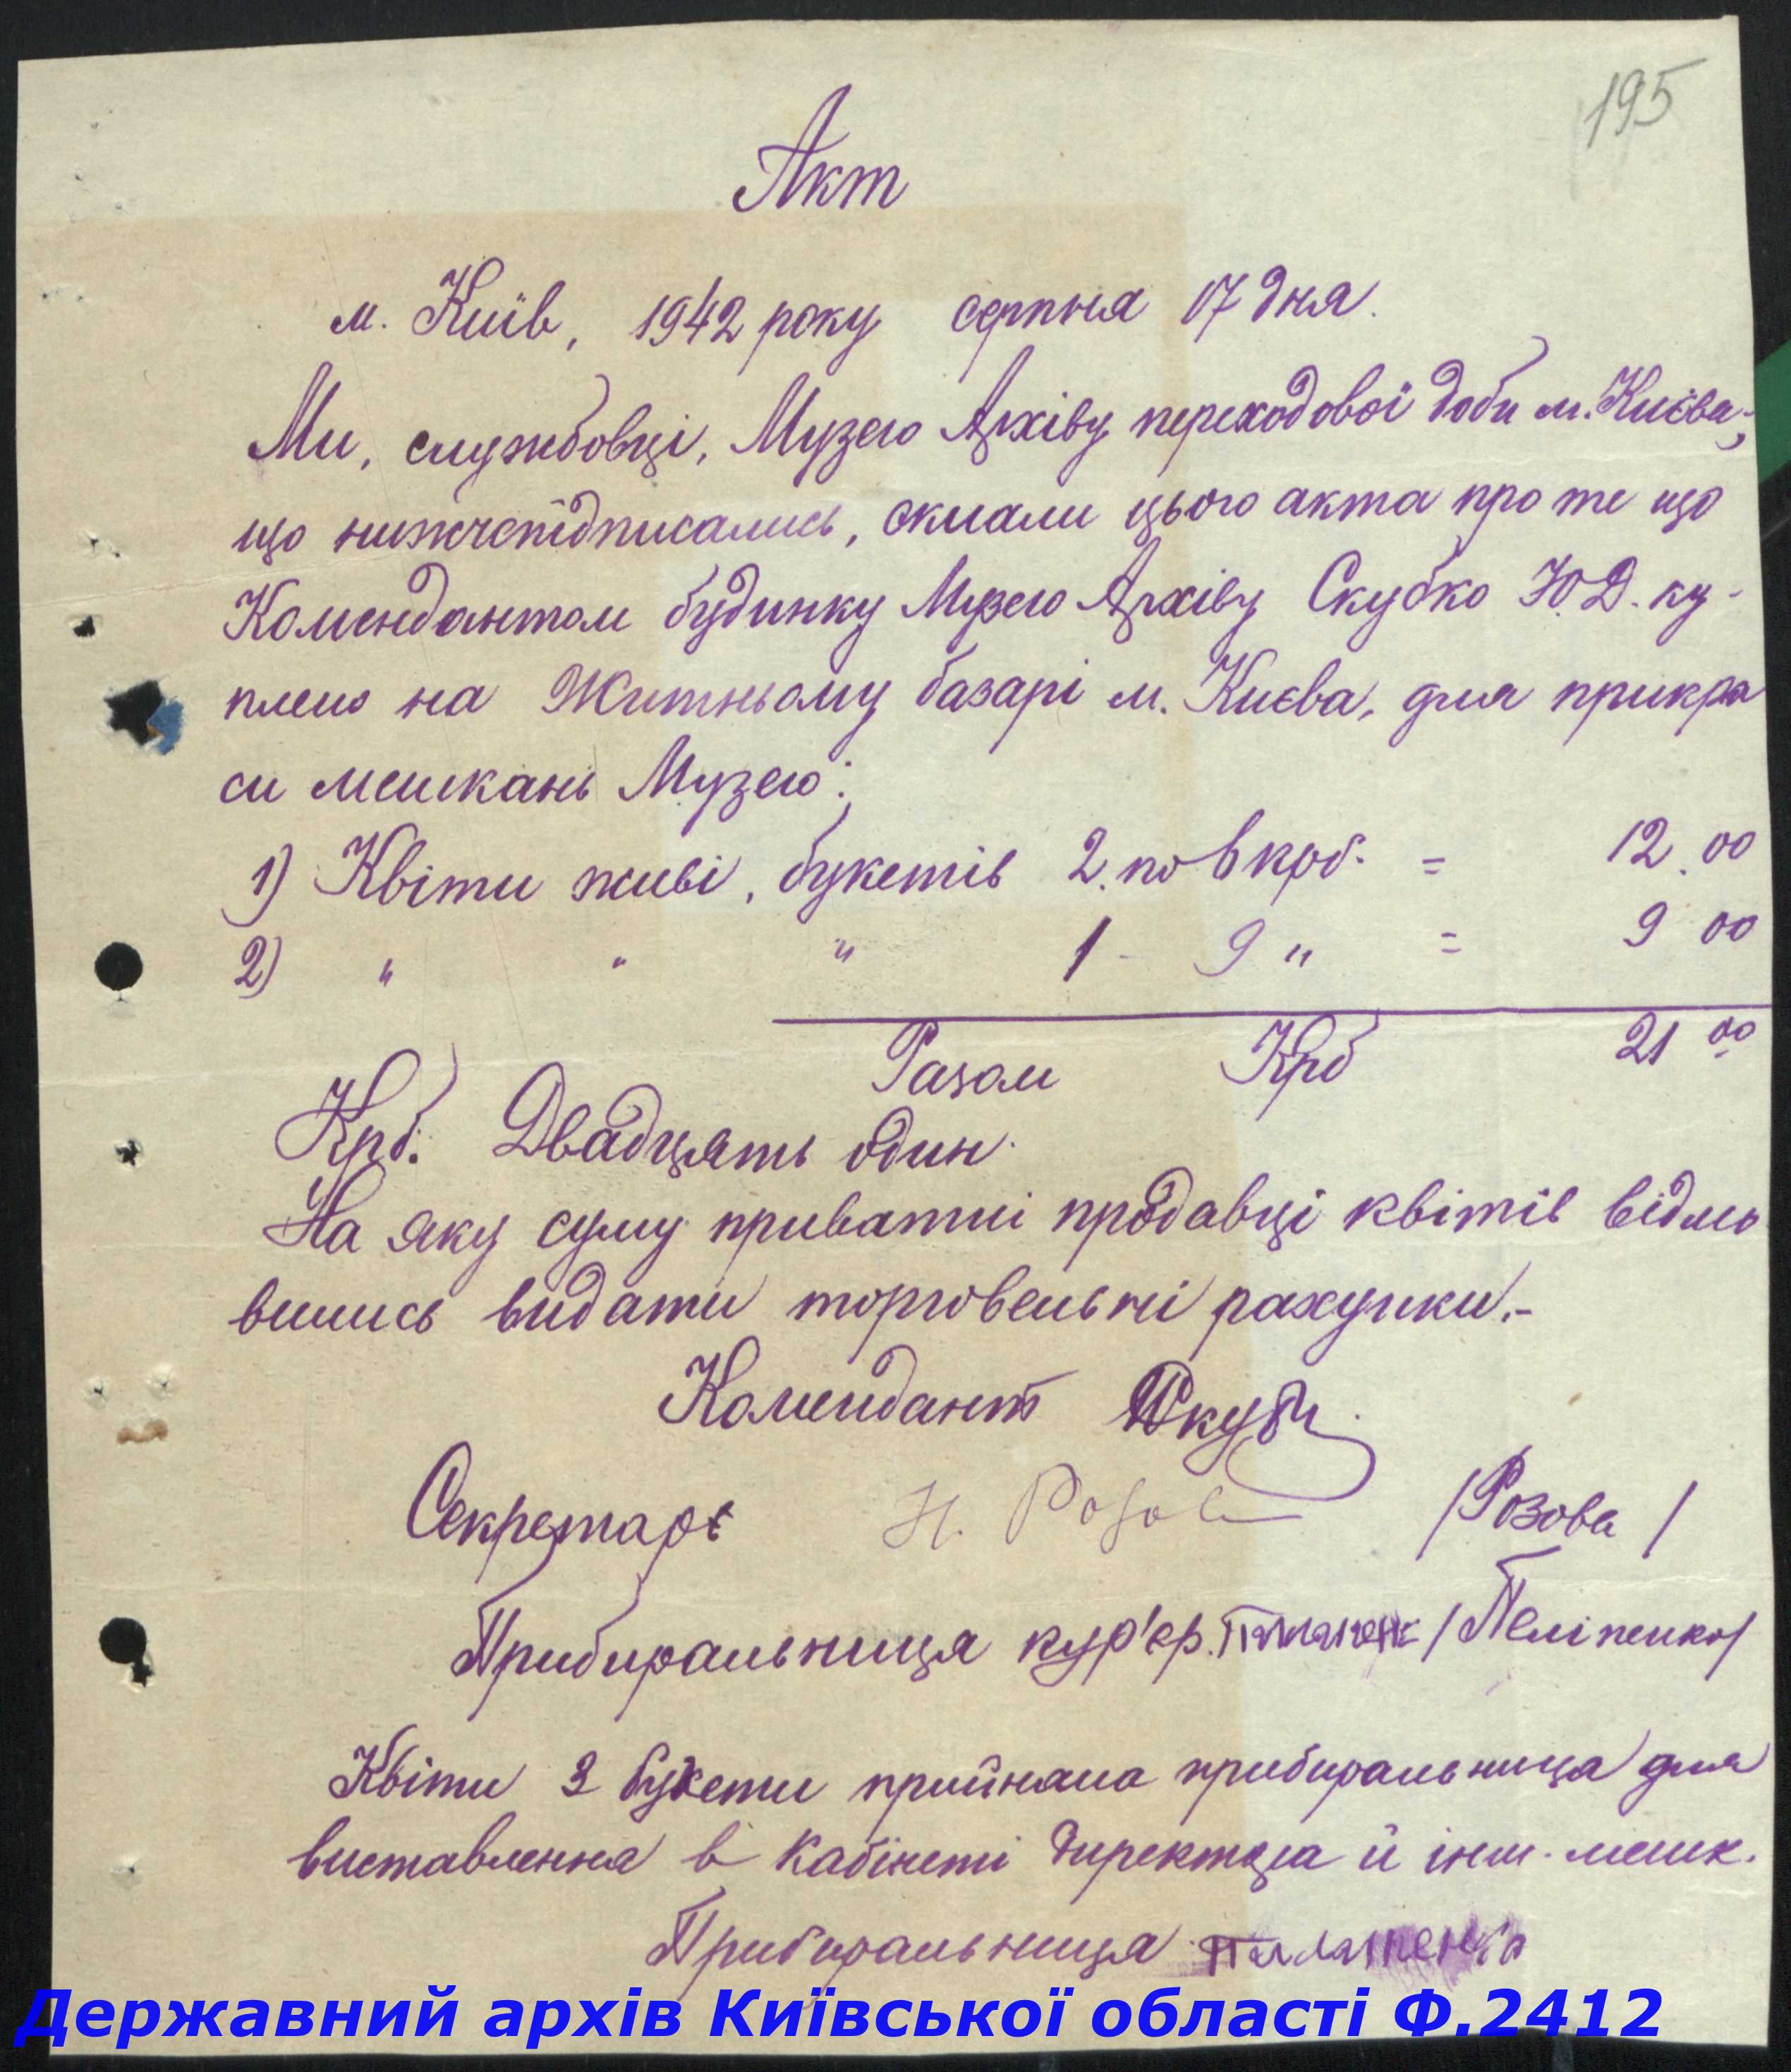 195
Акт
м. Київ, 1942 року серпня 17 дня.
Ми, службовці, Музею Архіву переходової доби м. Києва,
що нижчепідписались, склали цього акта про те що
Комендантом будинку Музею Архіву Скубко Ю.Д. ку-
плено на Житньому базарі м. Києва, для прикра
си мешкань Музею:
1) Квіти живі, букетів 2 по 6 крб. = 12.00
2) " " " 1 - 9 " = 9 00
Разом Крб 21 00
Крб. Двадцять один.
На яку суму приватні продавці квітів відмо
вились видати торговельні рахунки.-
Комендант
Секретарь Н. Розова /Розова/
Прибиральниця кур'єр. /Пеліпенко/
Квіти 3 букети прийняла прибиральниця для
виставлення в кабінеті Директора й інш. мешк.
Прибиральниця
Державний архів Київської області Ф.2412